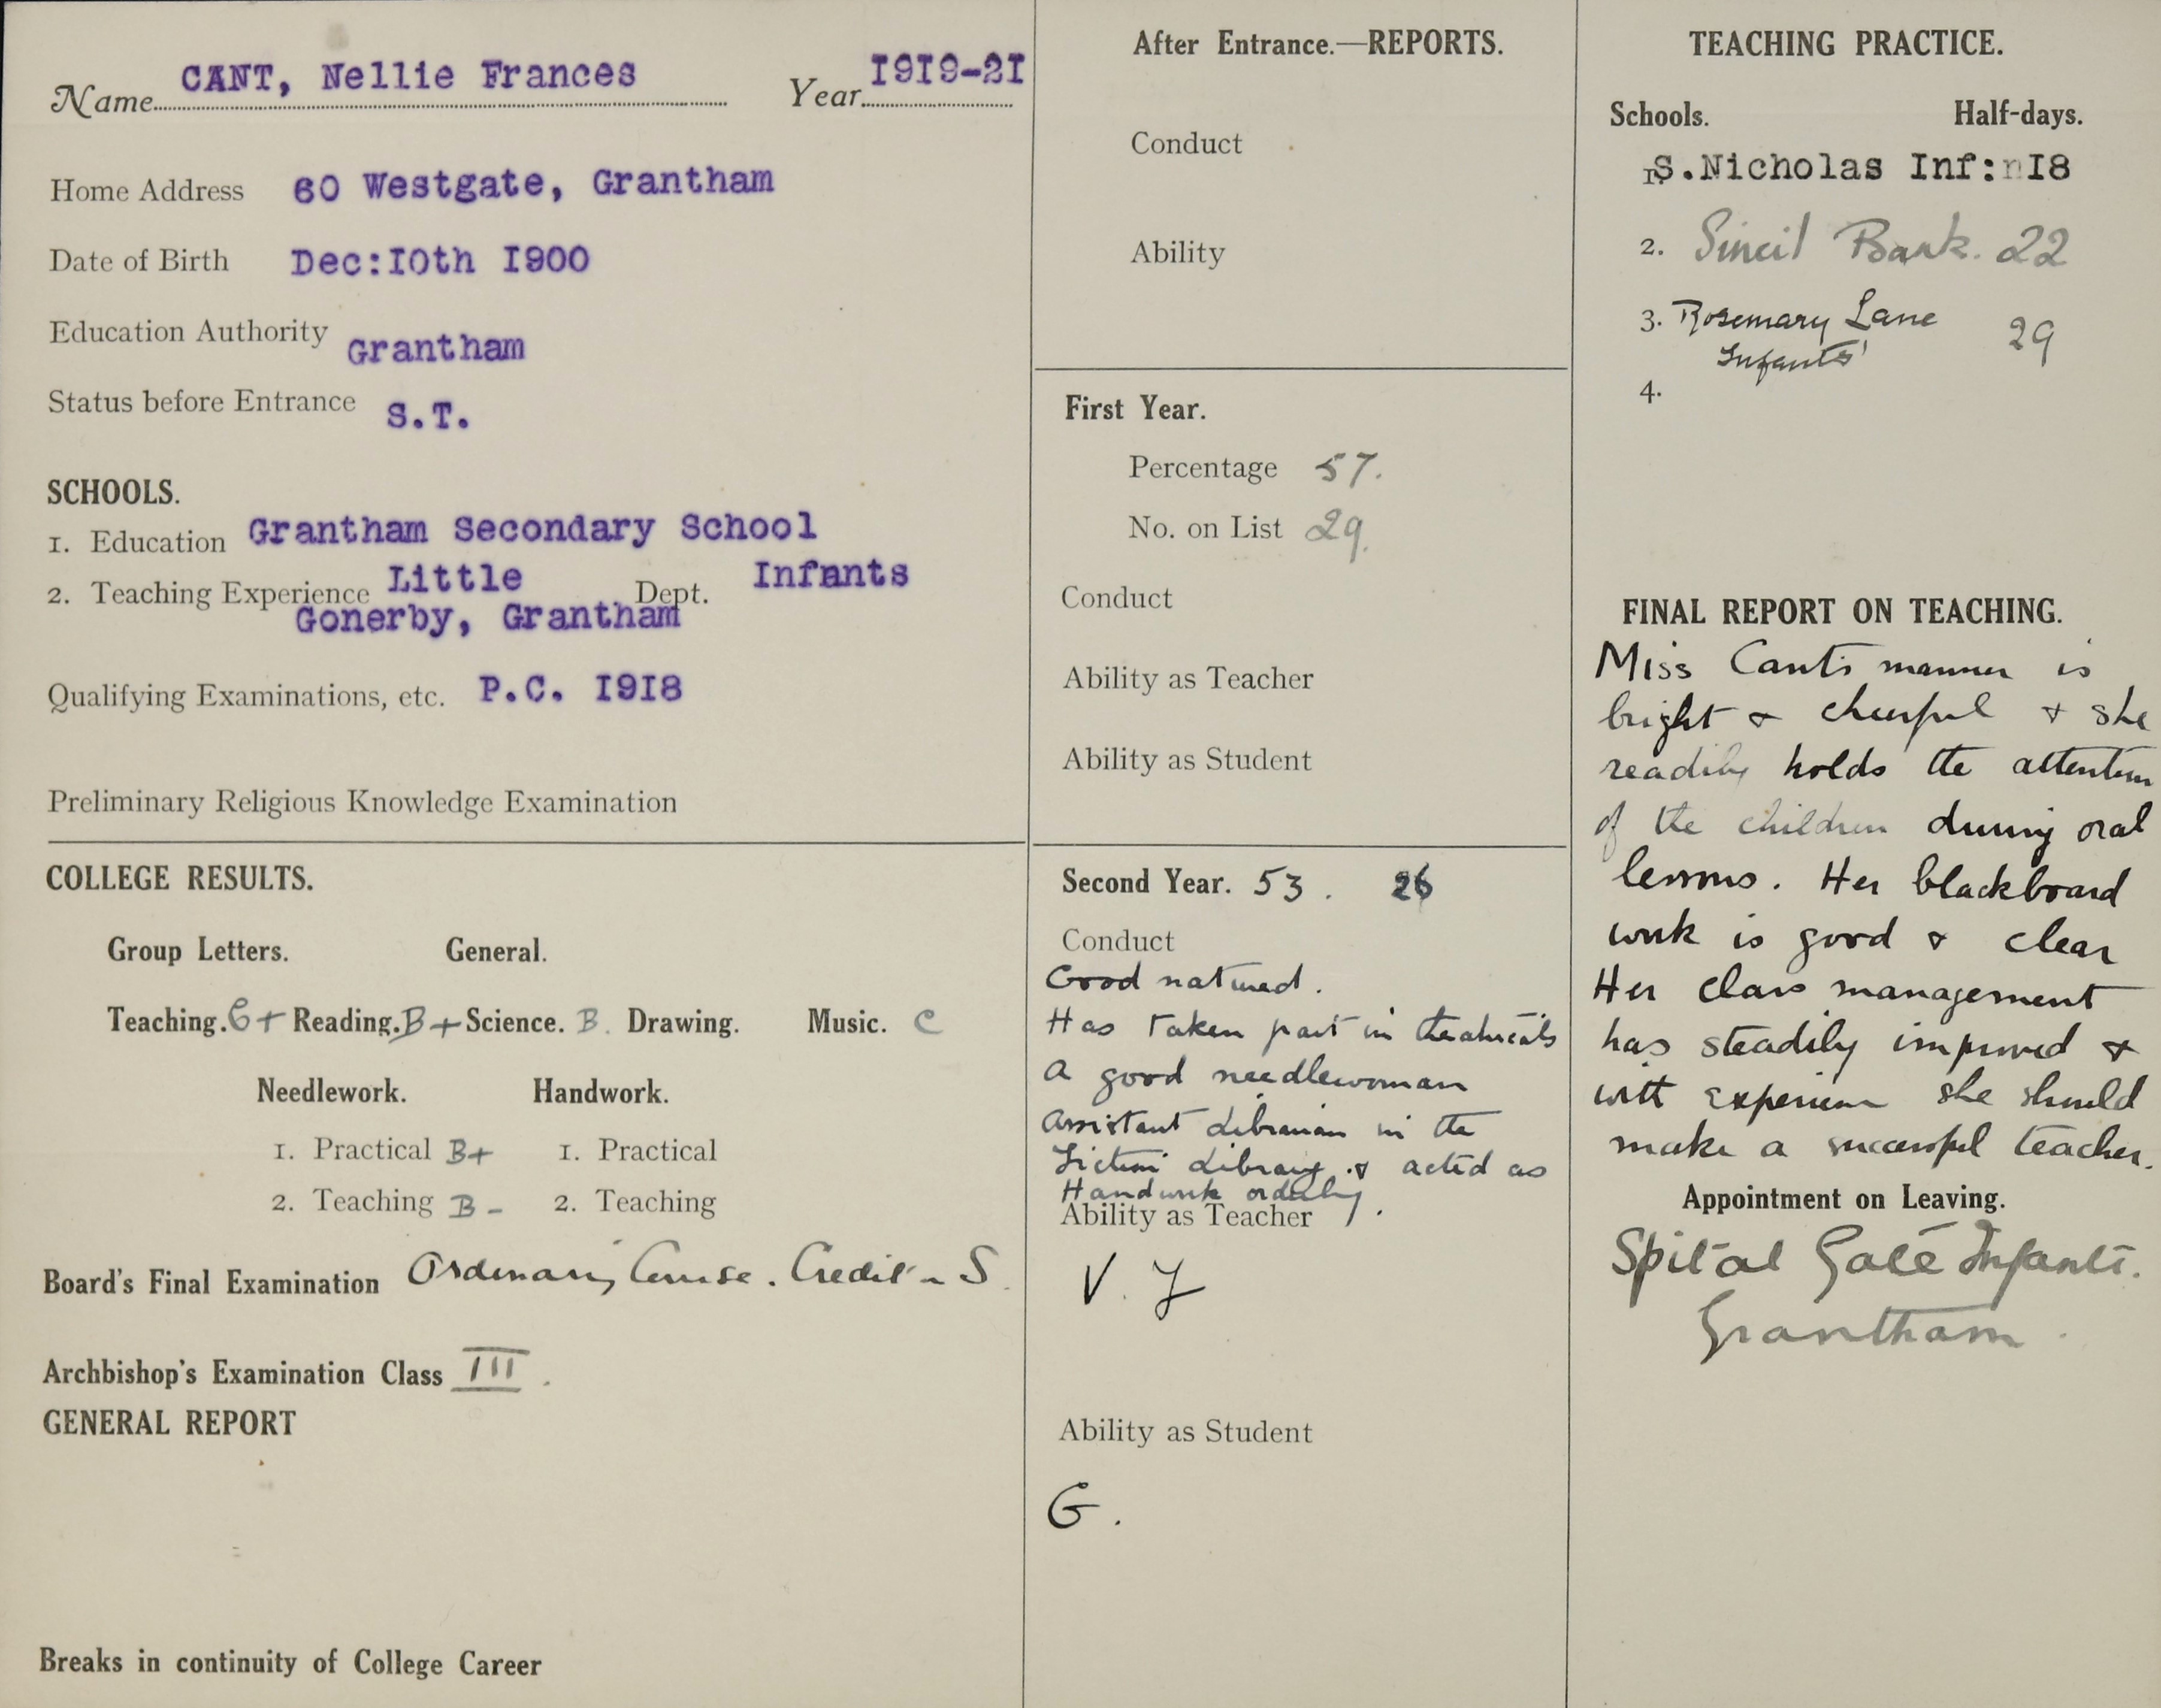 Name CANT, Nellie Frances Year 1919-21
Home Address 60 Westgate, Grantham
Date of Birth Dec:10th 1900
Education Authority Grantham
Status before Entrance S.T.
SCHOOLS.
1. Education Grantham Secondary School
2. Teaching Experience Little Dept. Infants
Gonerby, Grantham
Qualifying Examinations, etc. P.C. 1918
Preliminary Religious Knowledge Examination
COLLEGE RESULTS.
Group Letters. General.
Teaching. Reading. B+ Science. B. Drawing. Music. C
Needlework. Handwork.
1. Practical B+ 1. Practical
2. Teaching B- 2. Teaching
Board's Final Examination Ordinary Course. Credit - S.
Archbishop's Examination Class III.
GENERAL REPORT
Breaks in continuity of College Career
After Entrance.—REPORTS.
Conduct
Ability
First Year.
Percentage 57.
No. on List 29.
Conduct
Ability as Teacher
Ability as Student
Second Year. 53. 26
Conduct
Good natured.
Has taken part in theatricals
A good needlewoman
Assistant Librarian in the
Fiction Library & acted as
Handwork orderly.
Ability as Teacher
V. F
Ability as Student
G.
TEACHING PRACTICE.
Schools. Half-days.
1. S.Nicholas Inf: 18
2. Sincil Bank. 22
3. Rosemary Lane 29
Infants'
4.
FINAL REPORT ON TEACHING.
Miss Cant's manner is
bright & cheerful & she
readily holds the attention
of the children during oral
lessons. Her blackboard
work is good & clear
Her class management
has steadily improved &
with experience she should
make a successful teacher.
Appointment on Leaving.
Spital Gate Infants.
Grantham.